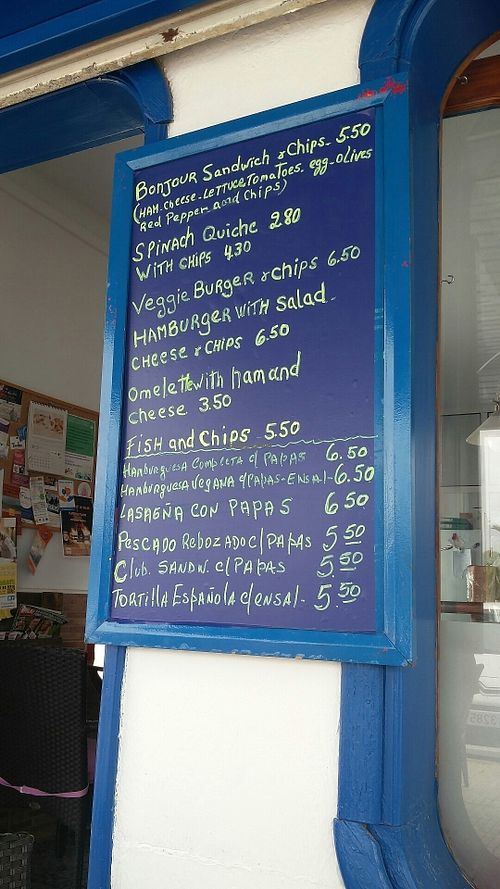 Bonjour Sandwich & Chips - 5.50
(HAM - Cheese - LETTUCE TOMATOES - egg - OLIVES
Red Pepper and Chips)
SPINACH QUICHE 2.80
WITH CHIPS 4.30
Veggie BURGER & CHIPS 6.50
HAMBURGER WITH Salad -
CHEESE & CHIPS 6.50
Omelette with ham and
cheese 3.50
FISH and CHIPS 5.50
HAMBURGUESA COMPLETA c/ PAPAS 6.50
HAMBURGUESA VEGANA c/PAPAS - ENSAL - 6.50
LASAGÑA CON PAPAS 6.50
PESCADO REBOZADO c/ PAPAS 5.50
Club. SANDW. c/ PAPAS 5.50
TORTILLA ESPAÑOLA c/ENSAL - 5.50